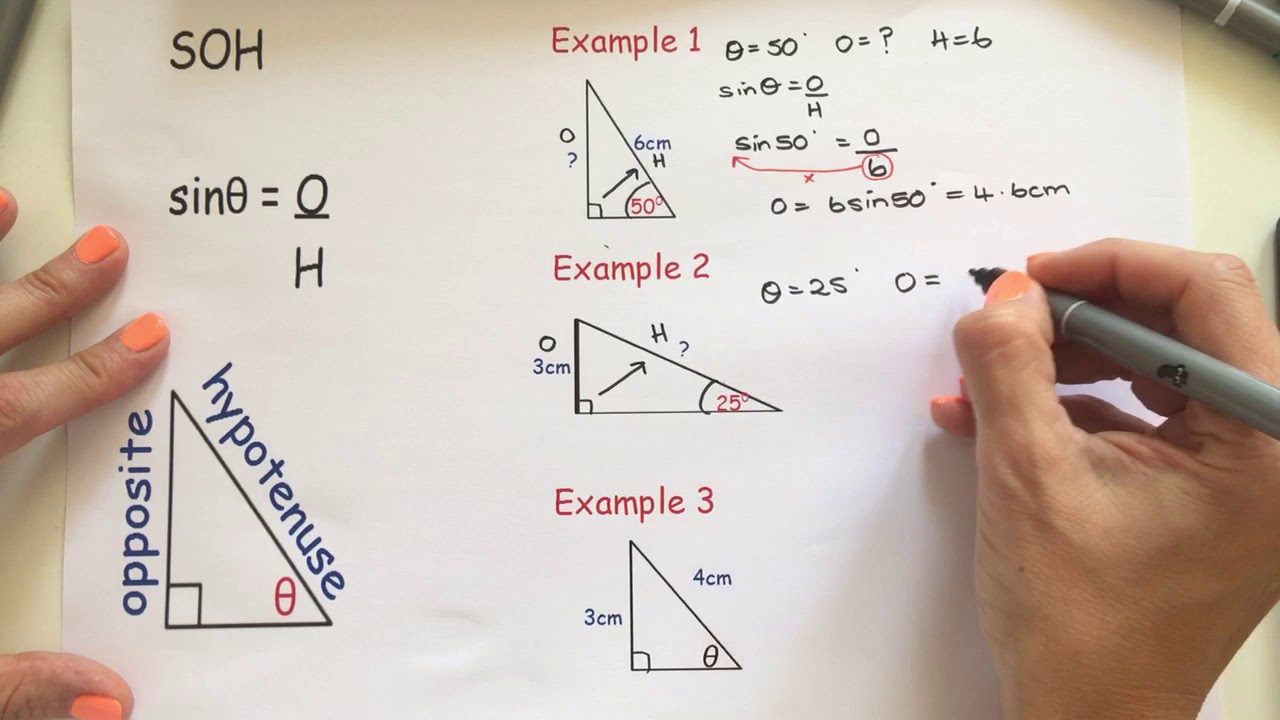 SOH
sinθ = O
H
opposite
hypotenuse
θ
Example 1 θ=50° O=? H=6
sinθ=O
H
O
?
6cm
H
50°
sin50° = O
6
x
O= 6sin50° = 4.6cm
Example 2 θ=25° O=
O
3cm
H
?
25°
Example 3
3cm
4cm
θ